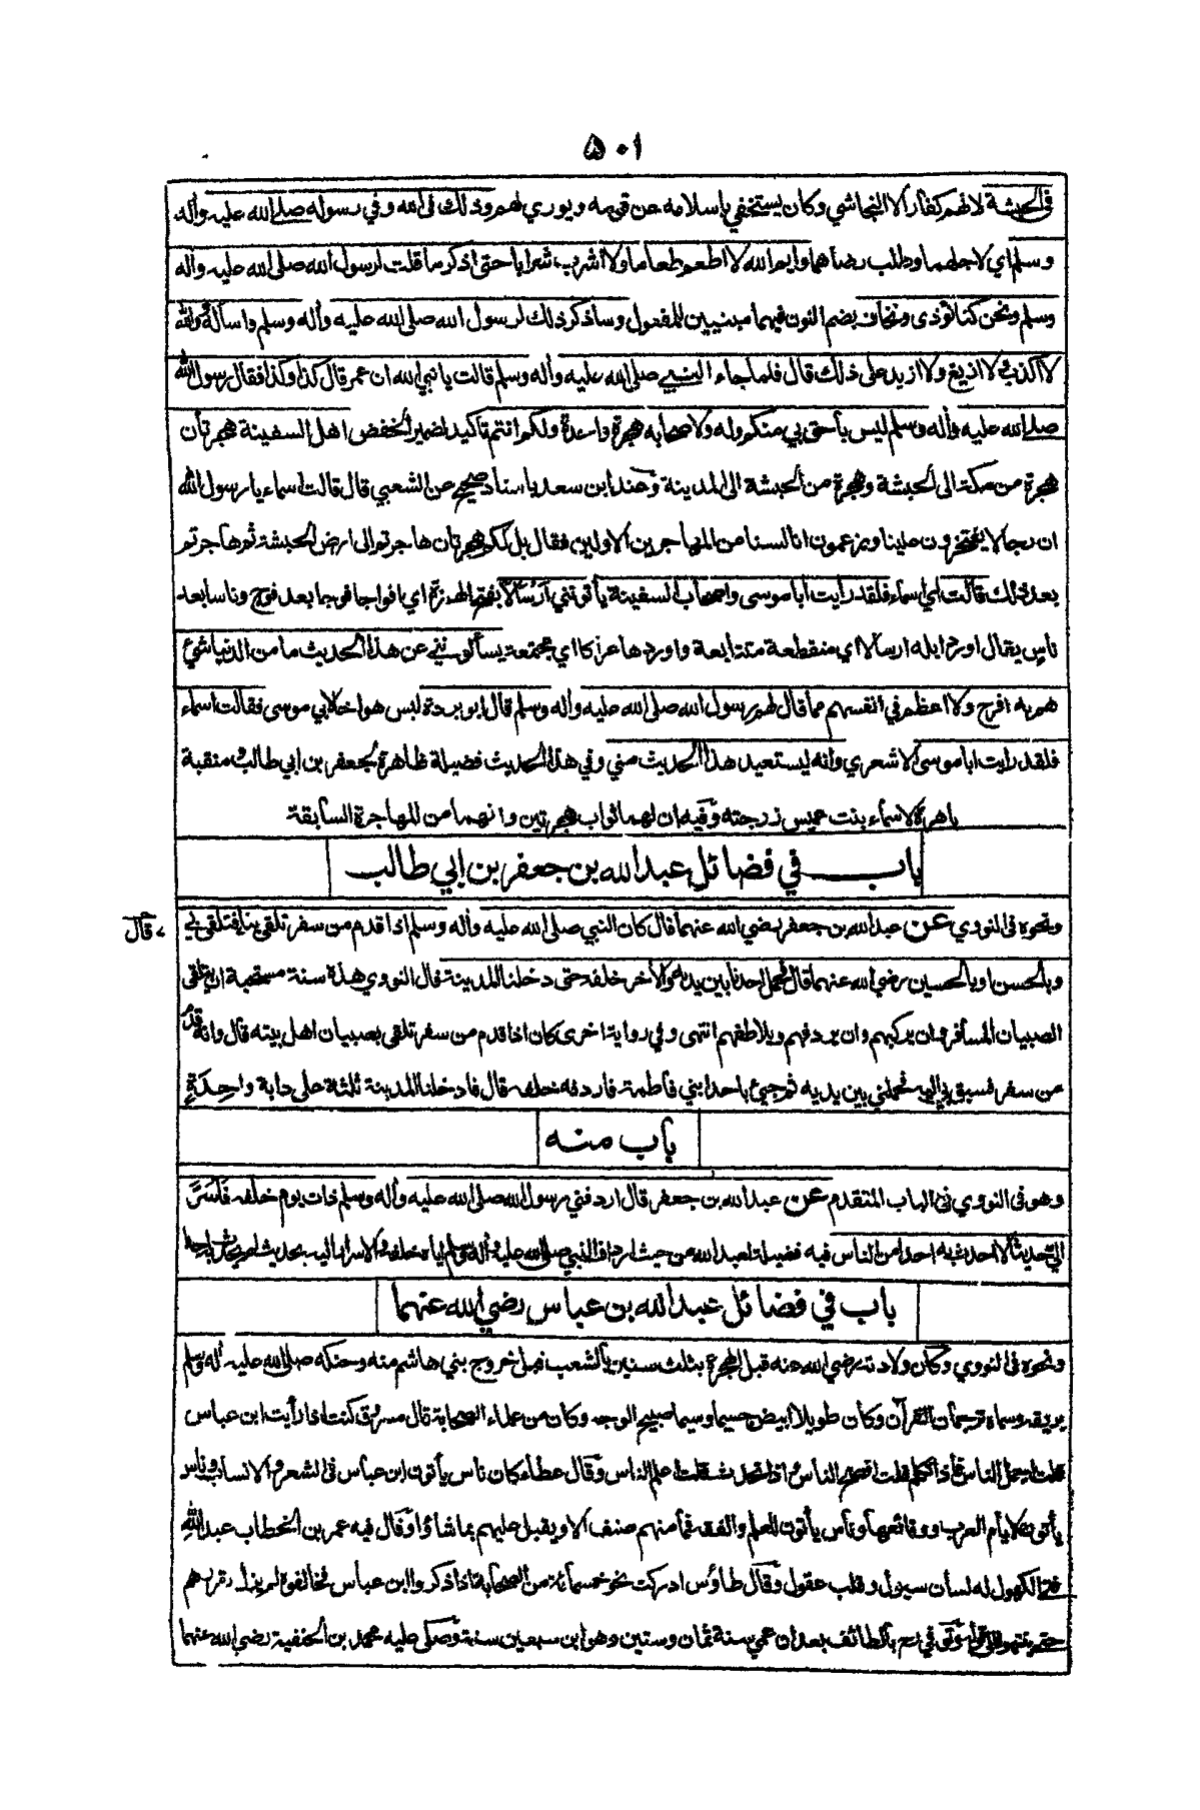 ٥٠١
فى الحبشة لانهم كفار الا النجاشي وكان يستخفي بإسلامه عن قومه ويوري لهم وذلك فى الله وفي رسوله صلى الله عليه وأله
وسلم اي لاجلهما وطلب رضاهما وايم الله لا اطعم طعاما ولا اشرب شرابا حتى اذكر ما قلت لرسول الله صلى الله عليه وأله
وسلم ونحن كنا نؤذى ونخاف بضم النون فيهما مبنيين للمفعول وسأذكر ذلك لرسول الله صلى الله عليه وأله وسلم واسأله والله
لا اكذب ولا ازيغ ولا ازيد على ذلك قال فلما جاء النبي صلى الله عليه وأله وسلم قالت يا نبي الله ان عمر قال كذا وكذا فقال رسول الله
صلى الله عليه وأله وسلم ليس بأحق بي منكم وله ولاصحابه هجرة واحدة ولكم انتم تاكيد لضمير الخفض اهل السفينة هجرتان
هجرة من مكة الى الحبشة وهجرة من الحبشة الى المدينة وعند ابن سعد باسناد صحيح عن الشعبي قال قالت اسماء يا رسول الله
ان رجالا يفتخرون علينا ويزعمون انا لسنا من المهاجرين الاولين فقال بل لكم هجرتان هاجرتم الى ارض الحبشة ثم هاجرتم
بعد ذلك قالت اي اسماء فلقد رايت ابا موسى واصحاب السفينة يأتونني أرسالا بفتح الهمزة اي افواجا فوجا بعد فوج وناسا بعد
ناس يقال اورد ابله ارسالا اي منقطعة متتابعة واوردها عراكا اي مجتمعة يسألونني عن هذا الحديث ما من الدنيا شئ
هم به افرح ولا اعظم في انفسهم مما قال لهم رسول الله صلى الله عليه وأله وسلم قال ابو بردة ليس هو اخا لابي موسى فقالت اسماء
فلقد رايت ابا موسى الاشعري وانه ليستعيد هذا الحديث مني وفي هذا الحديث فضيلة ظاهرة لجعفر بن ابي طالب ومنقبة
باهرة لاسماء بنت عميس زوجته وفيه ان لهما ثواب هجرتين وانهما من المهاجرة السابقة
باب في فضائل عبد الله بن جعفر بن ابي طالب
ونحوه فى النووي عن عبد الله بن جعفر رضي الله عنهما قال كان النبي صلى الله عليه وأله وسلم اذا قدم من سفر تلقى بنا فتلقى بي
قال
وبالحسن او بالحسين رضي الله عنهما قال فحمل احدنا بين يديه والأخر خلفه حتى دخلنا المدينة قال النووي هذه سنة مستحبة ان يتلقى
الصبيان المسافر وان يركبهم وان يردفهم ويلاطفهم انتهى وفي رواية اخرى كان اذا قدم من سفر تلقى بصبيان اهل بيته قال وانه قدم
من سفر فسبق بي اليه فحملني بين يديه ثم جيئ باحد ابني فاطمة فاردفه خلفه قال فادخلنا المدينة ثلثة على دابة واحدة
باب منه
وهو فى النووي فى الباب المتقدم عن عبد الله بن جعفر قال اردفني رسول الله صلى الله عليه وأله وسلم ذات يوم خلفه فأسر
الي حديثا لا احدث به احدا من الناس فيه فضيلة لعبد الله من حيث ارداف النبي صلى الله عليه وأله وسلم اياه خلفه والاسرار اليه بحديث لم يحدث به احدا
باب في فضائل عبد الله بن عباس رضي الله عنهما
ونحوه فى النووي وكان ولادته رضي الله عنه قبل الهجرة بثلث سنين بالشعب قبل خروج بني هاشم منه وحنكه صلى الله عليه وأله وسلم
بريقه وسماه ترجمان القرأن وكان طويلا ابيض جسيما وسيما صبيح الوجه وكان من علماء الصحابة قال مسروق كنت اذا رأيت ابن عباس
قلت اجمل الناس فاذا تكلم قلت افصح الناس واذا تحدث قلت اعلم الناس وقال عطاء كان ناس يأتون ابن عباس فى الشعر والانساب وناس
يأتون لايام العرب ووقائعها وناس يأتون للعلم والفقه فما منهم صنف الا ويقبل عليهم بما شاؤا وقال فيه عمر بن الخطاب عبد الله
فتى الكهول له لسان سئول وقلب عقول وقال طاؤس ادركت نحو خمسمائة من الصحابة اذا ذكروا ابن عباس فخالفوه لم يزل يقررهم
حتى ينتهوا الى قوله وتوفي بالطائف بعد ان عمي سنة ثمان وستين وهو ابن سبعين سنة وصلى عليه محمد بن الحنفية رضي الله عنهما